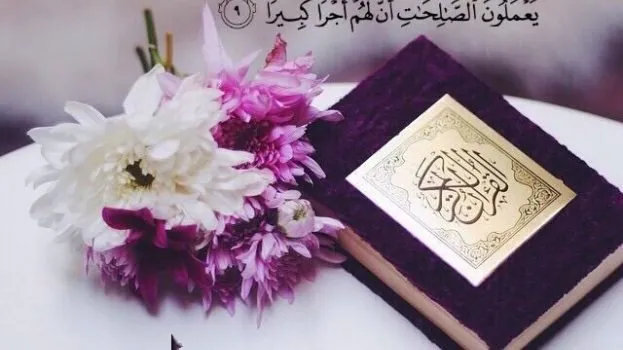 يَعْمَلُونَ ٱلصَّٰلِحَٰتِ أَنَّ لَهُمْ أَجْرًا كَبِيرًا ٩
القرآن الكريم